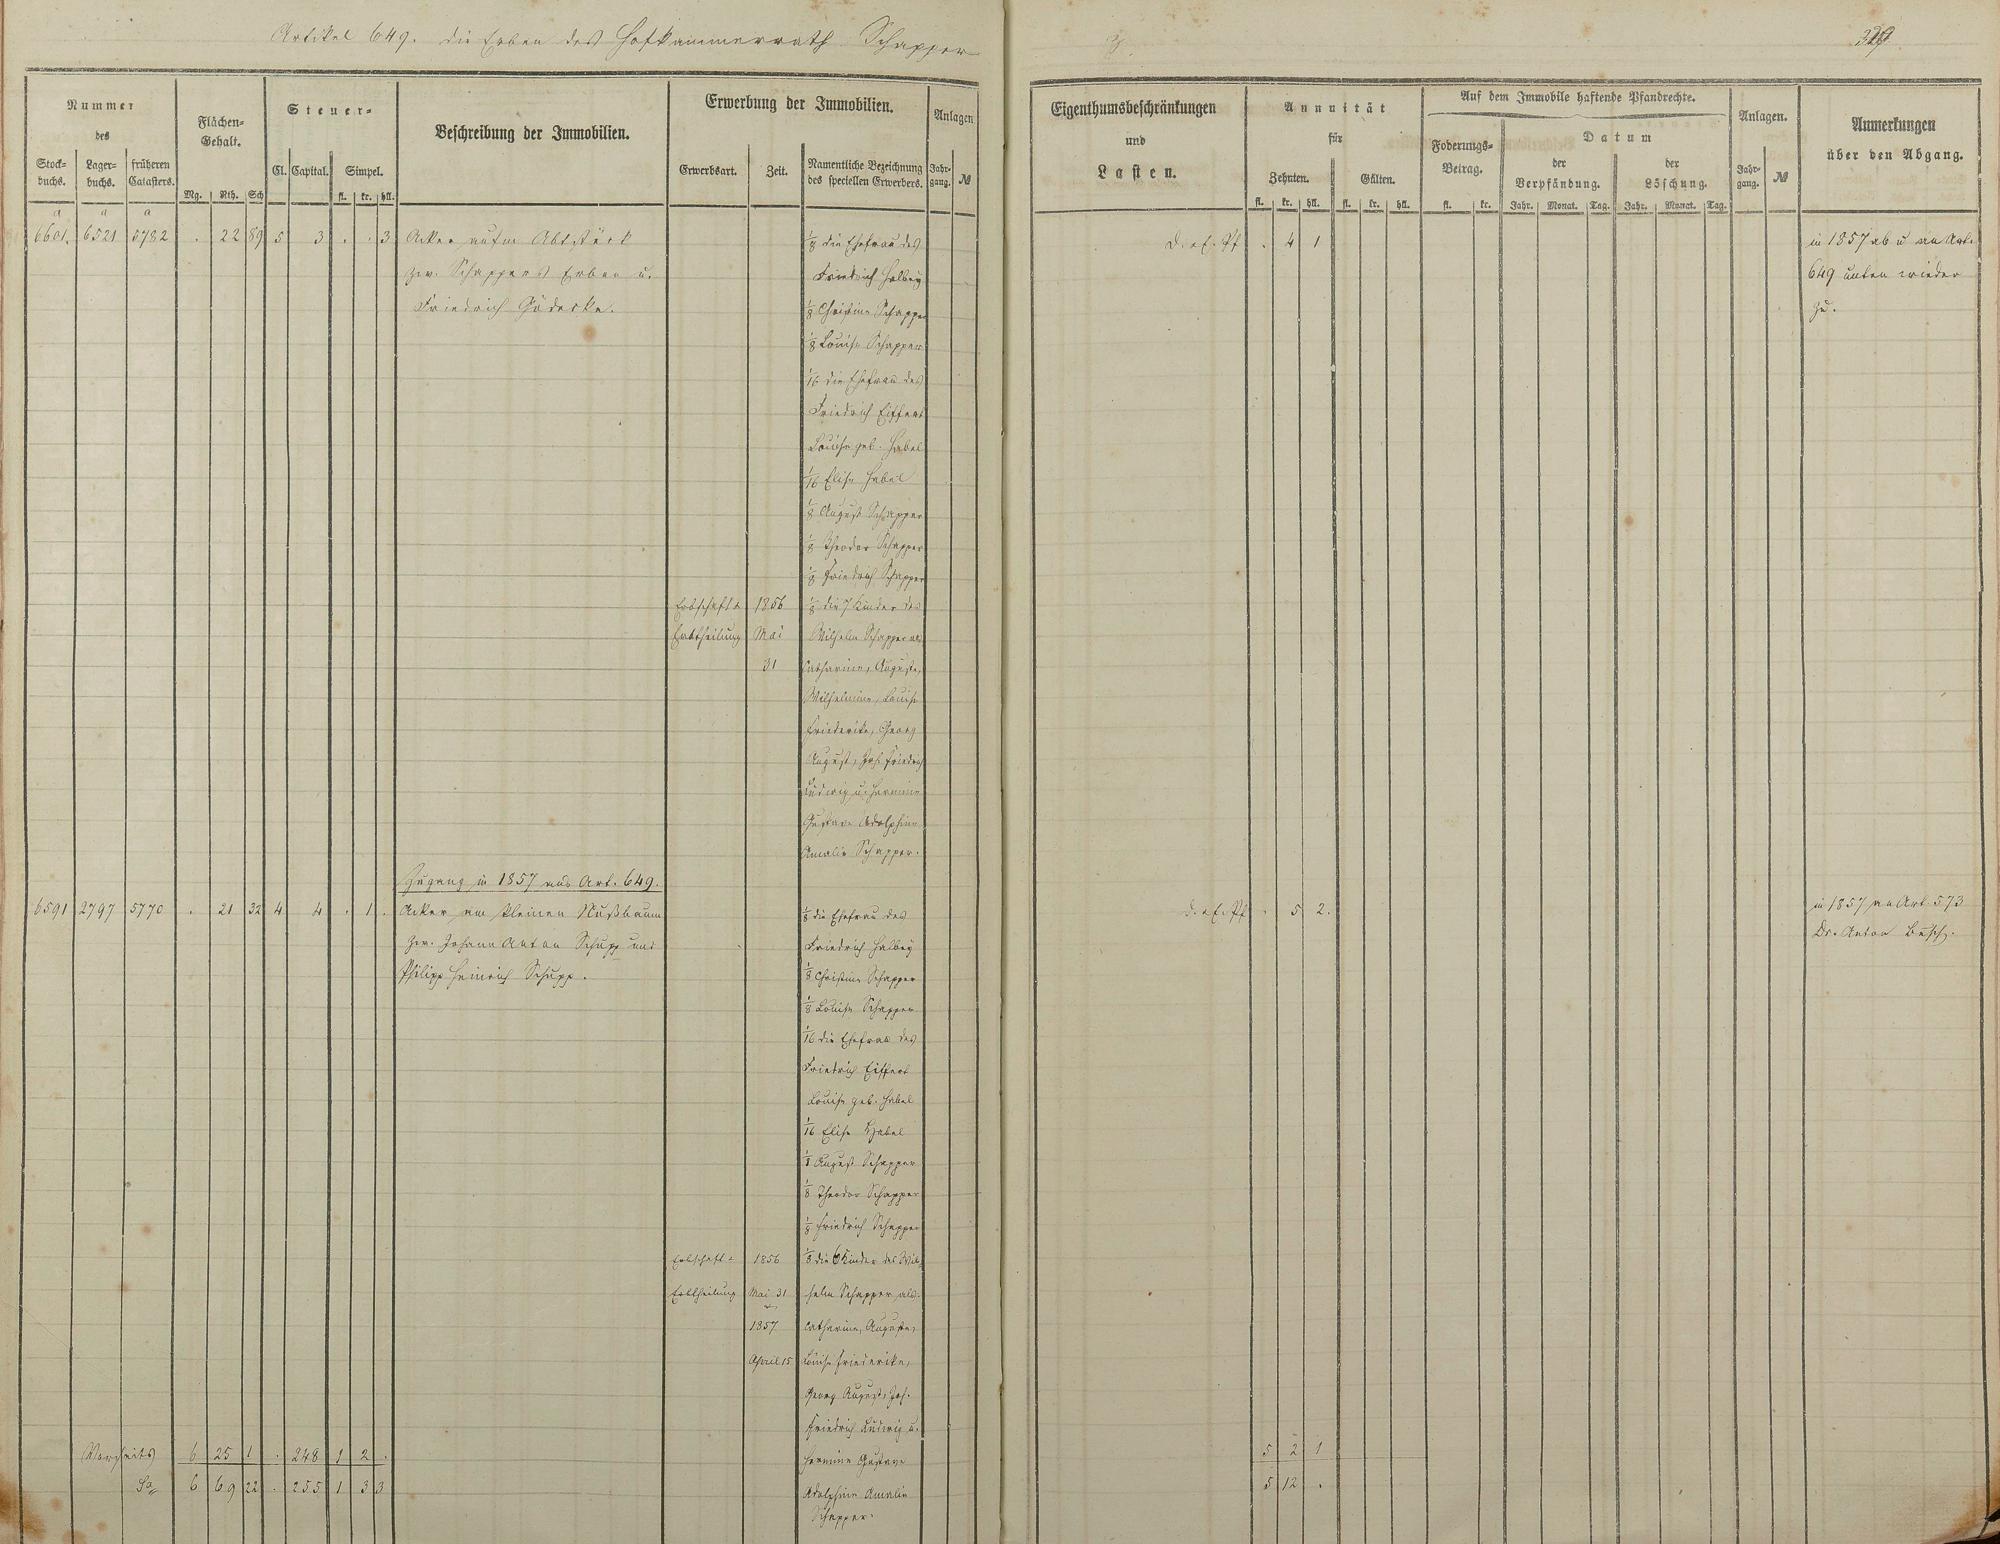 Artikel 649. die Erben des Hofkammerrath Schapper
329
Nummer
des
Stock-
buchs.
Lager-
buchs.
früheren
Catasters.
Flächen-
Gehalt.
Mg. Rth. Sch
Steuer-
Cl. Capital. Simpel.
fl. kr. hll.
Beschreibung der Immobilien.
Erwerbung der Immobilien.
Erwerbsart. Zeit.
Namentliche Bezeichnung
des speciellen Erwerbers.
Anlagen
Jahr-
gang. №
Eigenthumsbeschränkungen
und
Lasten.
Annuität
für
Zehnten. Gülten.
fl. kr. hll. fl. kr. hll.
Auf dem Immobile haftende Pfandrechte.
Foderungs-
Betrag.
fl. kr.
Datum
der
Verpfändung.
der
Löschung.
Jahr. Monat. Tag. Jahr. Monat. Tag.
Anlagen.
Jahr-
gang. №
Anmerkungen
über den Abgang.
a a a
6601. 6521 5782 . 22 89 5 3 . . 3 Acker aufm Abtstück
zw. Schappers Erben u.
Friedrich Gödecke.
1/8 die Ehefrau des
Friedrich Halbey
1/8 Christine Schapper
1/8 Louise Schapper
1/16 die Ehefrau des
Friedrich Eiffert
Louise geb. Habel
1/16 Elise Habel
1/8 August Schapper
1/8 Theodor Schapper
1/8 Friedrich Schapper
Erbschaft u. 1856 1/8 die 7 Kinder des
Erbtheilung Mai Wilhelm Schapper als
31 Catharine, Auguste,
Wilhelmine, Louise
Friederike, Georg
August, Joh. Friedrich
Ludwig u. Hermine
Gustave Adolphine
Amalie Schapper.
D. a E. Pf . 4 1
in 1857 ab u. an Art.
649 unten wieder
zu.
Zugang in 1857 aus Art. 649.
6591 2797 5770 . 21 32 4 4 . 1 . Acker am kleinen Nußbaum
zw. Johann Anton Schupp und
Philipp Heinrich Schupp.
1/8 die Ehefrau des
Friedrich Halbey
1/8 Christine Schapper
1/8 Louise Schapper
1/16 die Ehefrau des
Friedrich Eiffert
Louise geb. Habel
1/16 Elise Habel
1/8 August Schapper
1/8 Theodor Schapper
1/8 Friedrich Schapper
Erbschaft u. 1856 1/8 die 6 Kinder des Wil-
Erbtheilung Mai 31 helm Schapper als:
1857 Catharine, Auguste,
April 15 Louise Friederike,
Georg August, Joh.
Friedrich Ludwig u.
Hermine Gustave
Adolphine Amalie
Schapper.
D. a E. Pf . 5 2.
in 1857 an Art 573
Dr. Anton Busch.
Vorseits 6 25 1 . 248 1 2 .
5 2 1
Sa 6 69 22 . 255 1 3 3
5 12 .